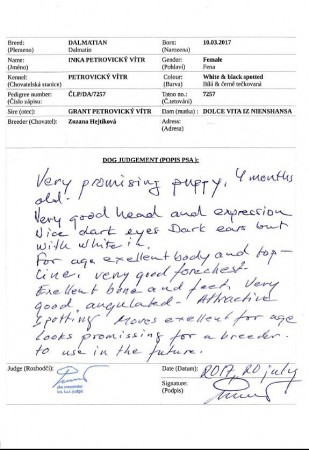 Breed: DALMATIAN Born: 10.03.2017
(Plemeno) Dalmatin (Narozena)
Name: INKA PETROVICKÝ VÍTR Gender: Female
(Jméno) (Pohlaví) Fena
Kennel: PETROVICKÝ VÍTR Colour: White & black spotted
(Chovatelská stanice) (Barva) Bílá & černě tečkovaná
Pedigree number: ČLP/DA/7257 Tatoo no.: 7257
(Číslo zápisu: (Č.tetování)
Sire (otec): GRANT PETROVICKÝ VÍTR Dam (matka): DOLCE VITA IZ NIENSHANSA
Breeder (Chovatel): Zuzana Hejtíková Address:
(Adresa)
DOG JUDGEMENT (POPIS PSA):
Very promising puppy, 4 months
old.
Very good head and expression
Nice dark eyes Dark ears but
with white in.
For age exellent body and top-
line, very good forechest.
Exellent bone and feet. Very
good angulated. Attractive
spotting. Moves exellent for age
Looks promissing for a breeder
to use in the future.
Judge (Rozhodčí): Date (Datum): 2017, 20 july
Signature:
(Podpis)